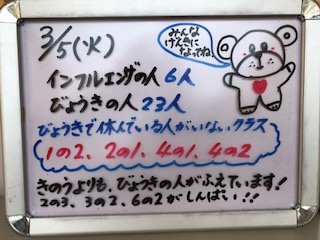 3/5(火)
みんな
げんきに
なってね。
インフルエンザの人 6人
びょうきの人 23人
びょうきで休んでいる人がいないクラス
1の2、2の1、4の1、4の2
きのうよりも、びょうきの人がふえています!
2の3、3の2、6の2がしんぱい!!